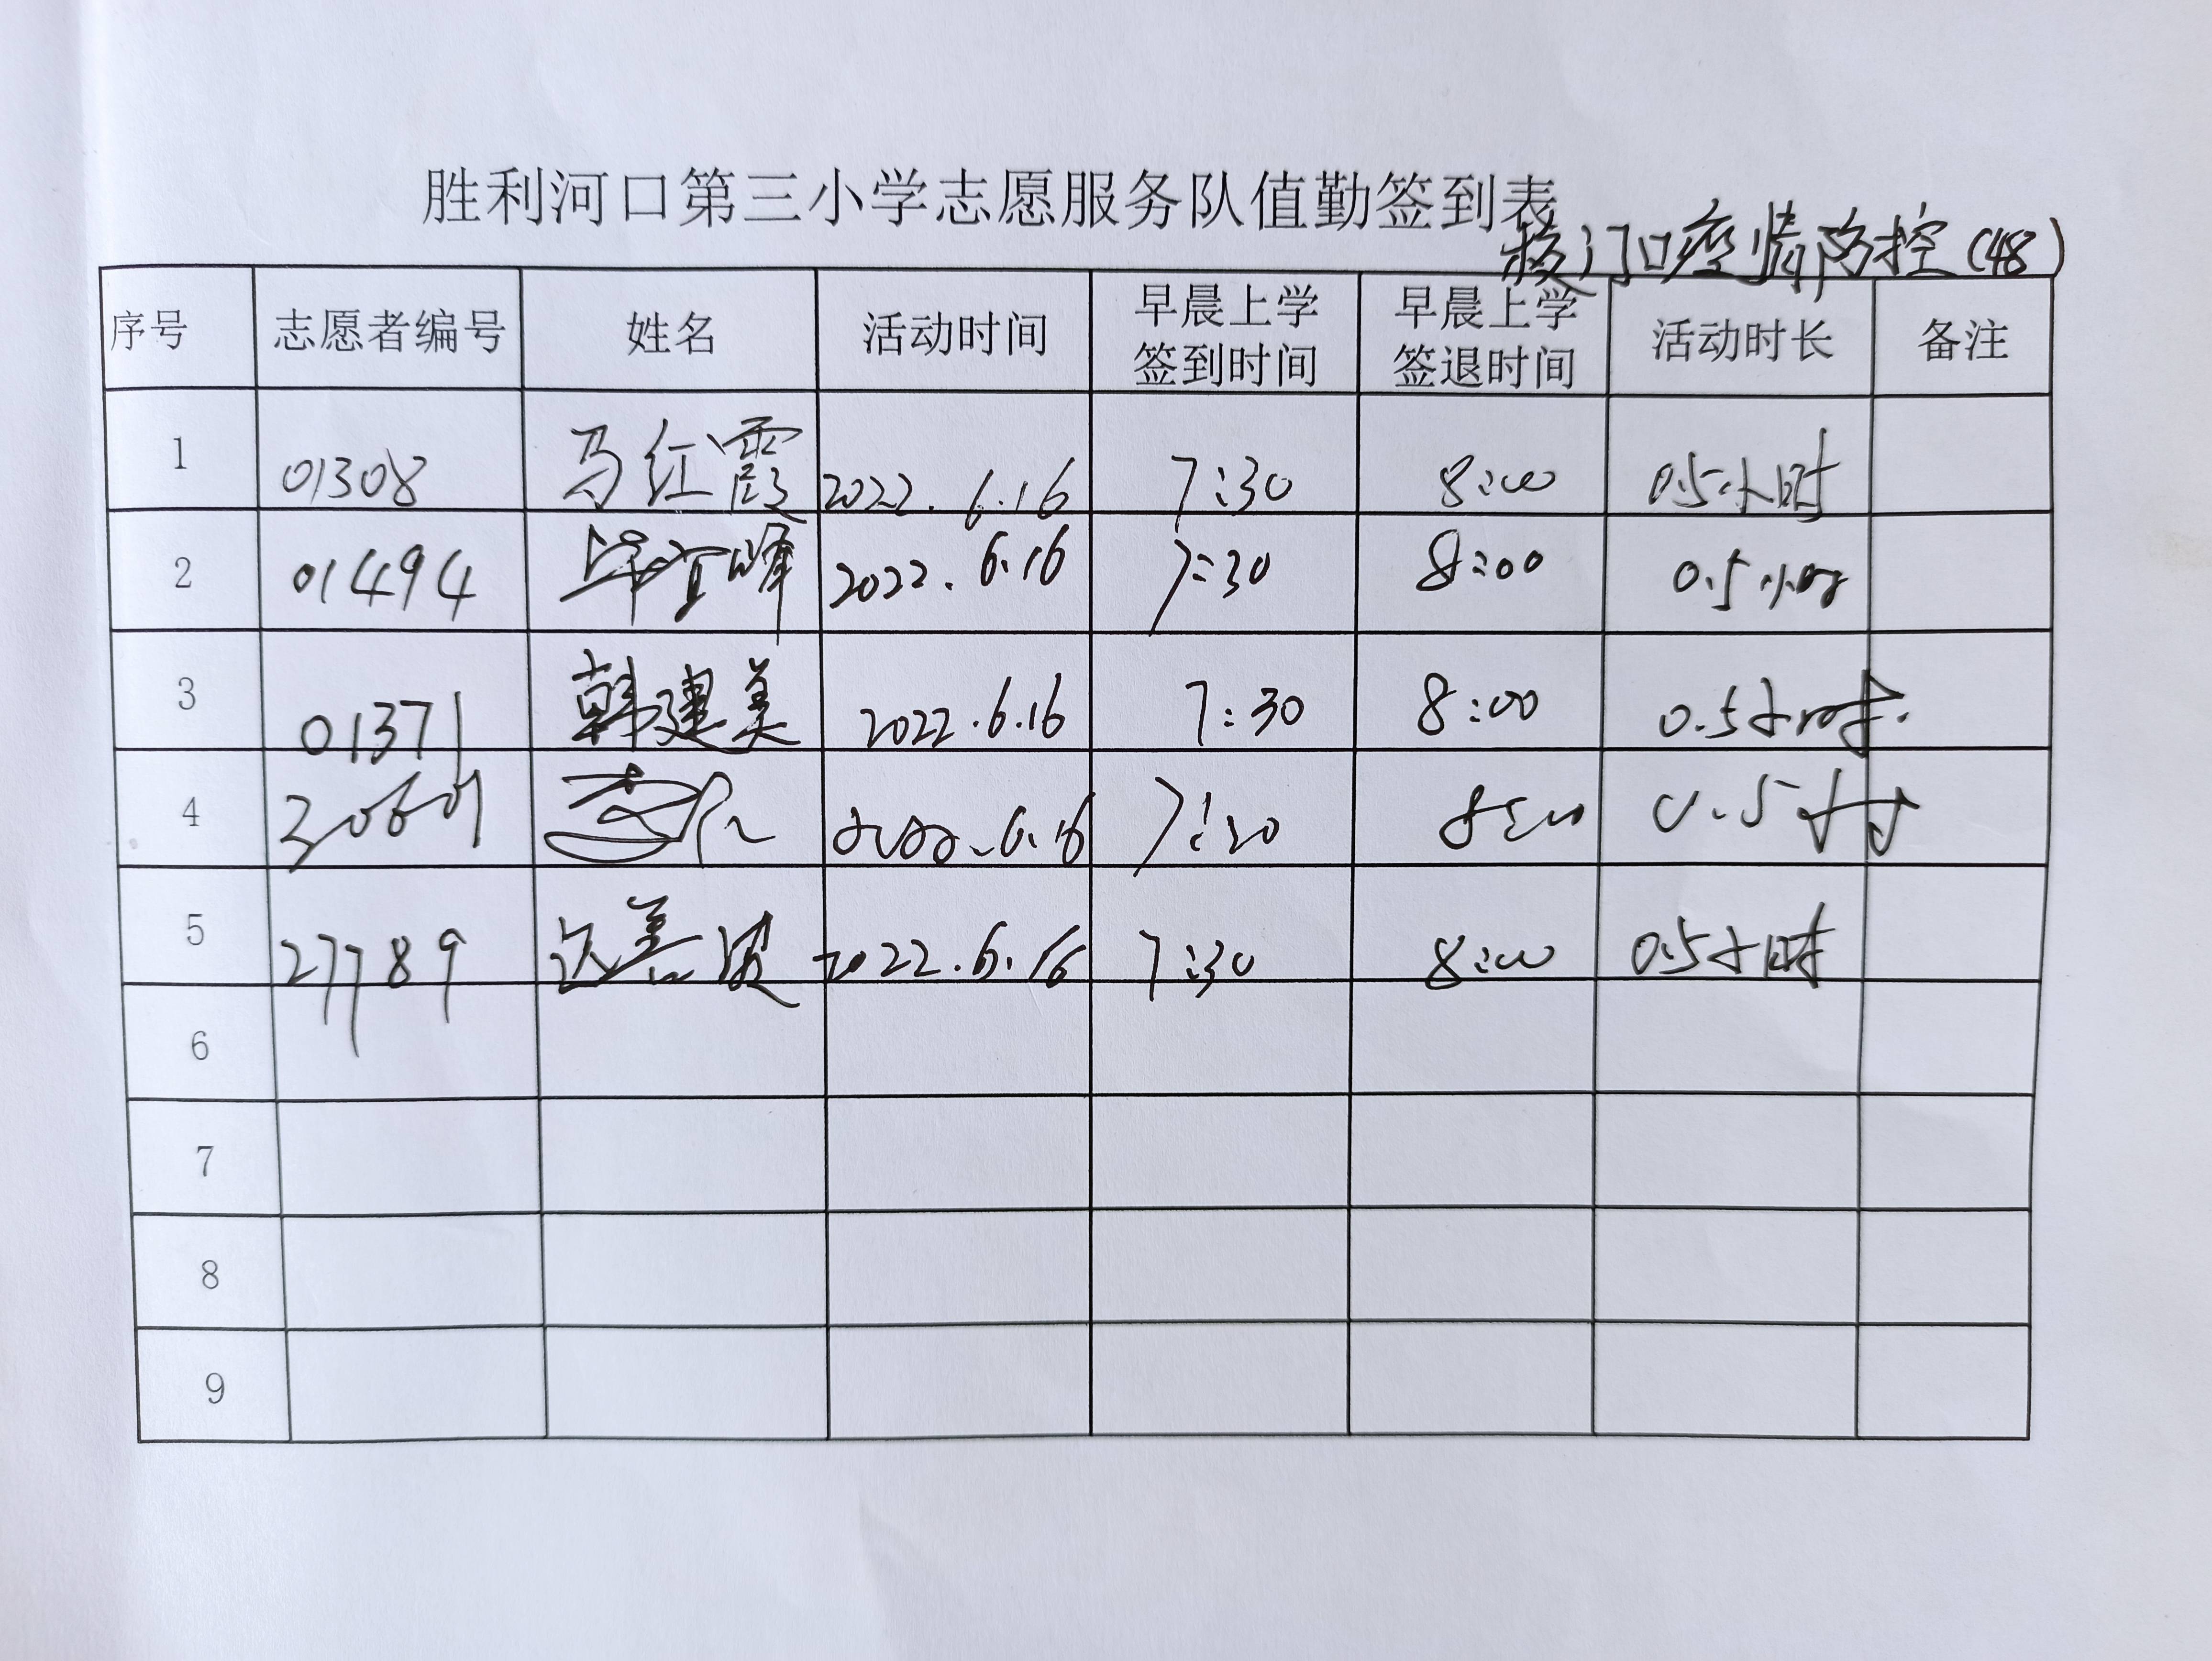 胜利河口第三小学志愿服务队值勤签到表
校门口疫情防控(48)
序号 志愿者编号 姓名 活动时间 早晨上学签到时间 早晨上学签退时间 活动时长 备注
1 01308 马红霞 2022.6.16 7:30 8:00 0.5小时
2 01494 毕宜峰 2022.6.16 7:30 8:00 0.5小时
3 01371 韩建美 2022.6.16 7:30 8:00 0.5小时.
4 2022.6.16 7:30 8:00 0.5小时
5 27789 善波 2022.6.16 7:30 8:00 0.5小时
6
7
8
9